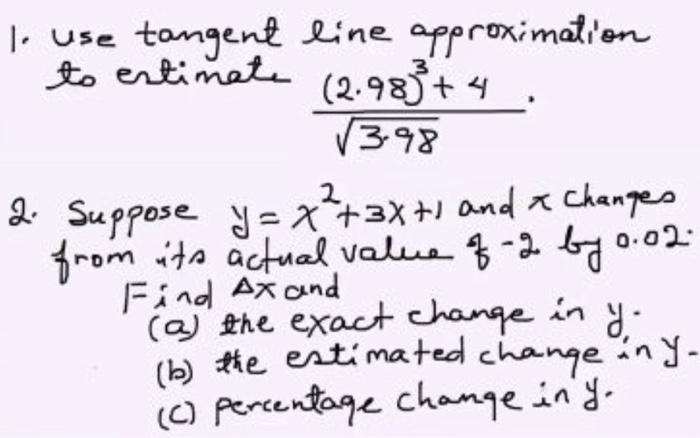 1. use tangent line approximation
to estimate (2.98)³ + 4 / √3.98 .
2. Suppose y = x² + 3x + 1 and x changes
from its actual value of -2 by 0.02.
Find Δx and
(a) the exact change in y.
(b) the estimated change in y.
(c) percentage change in y.